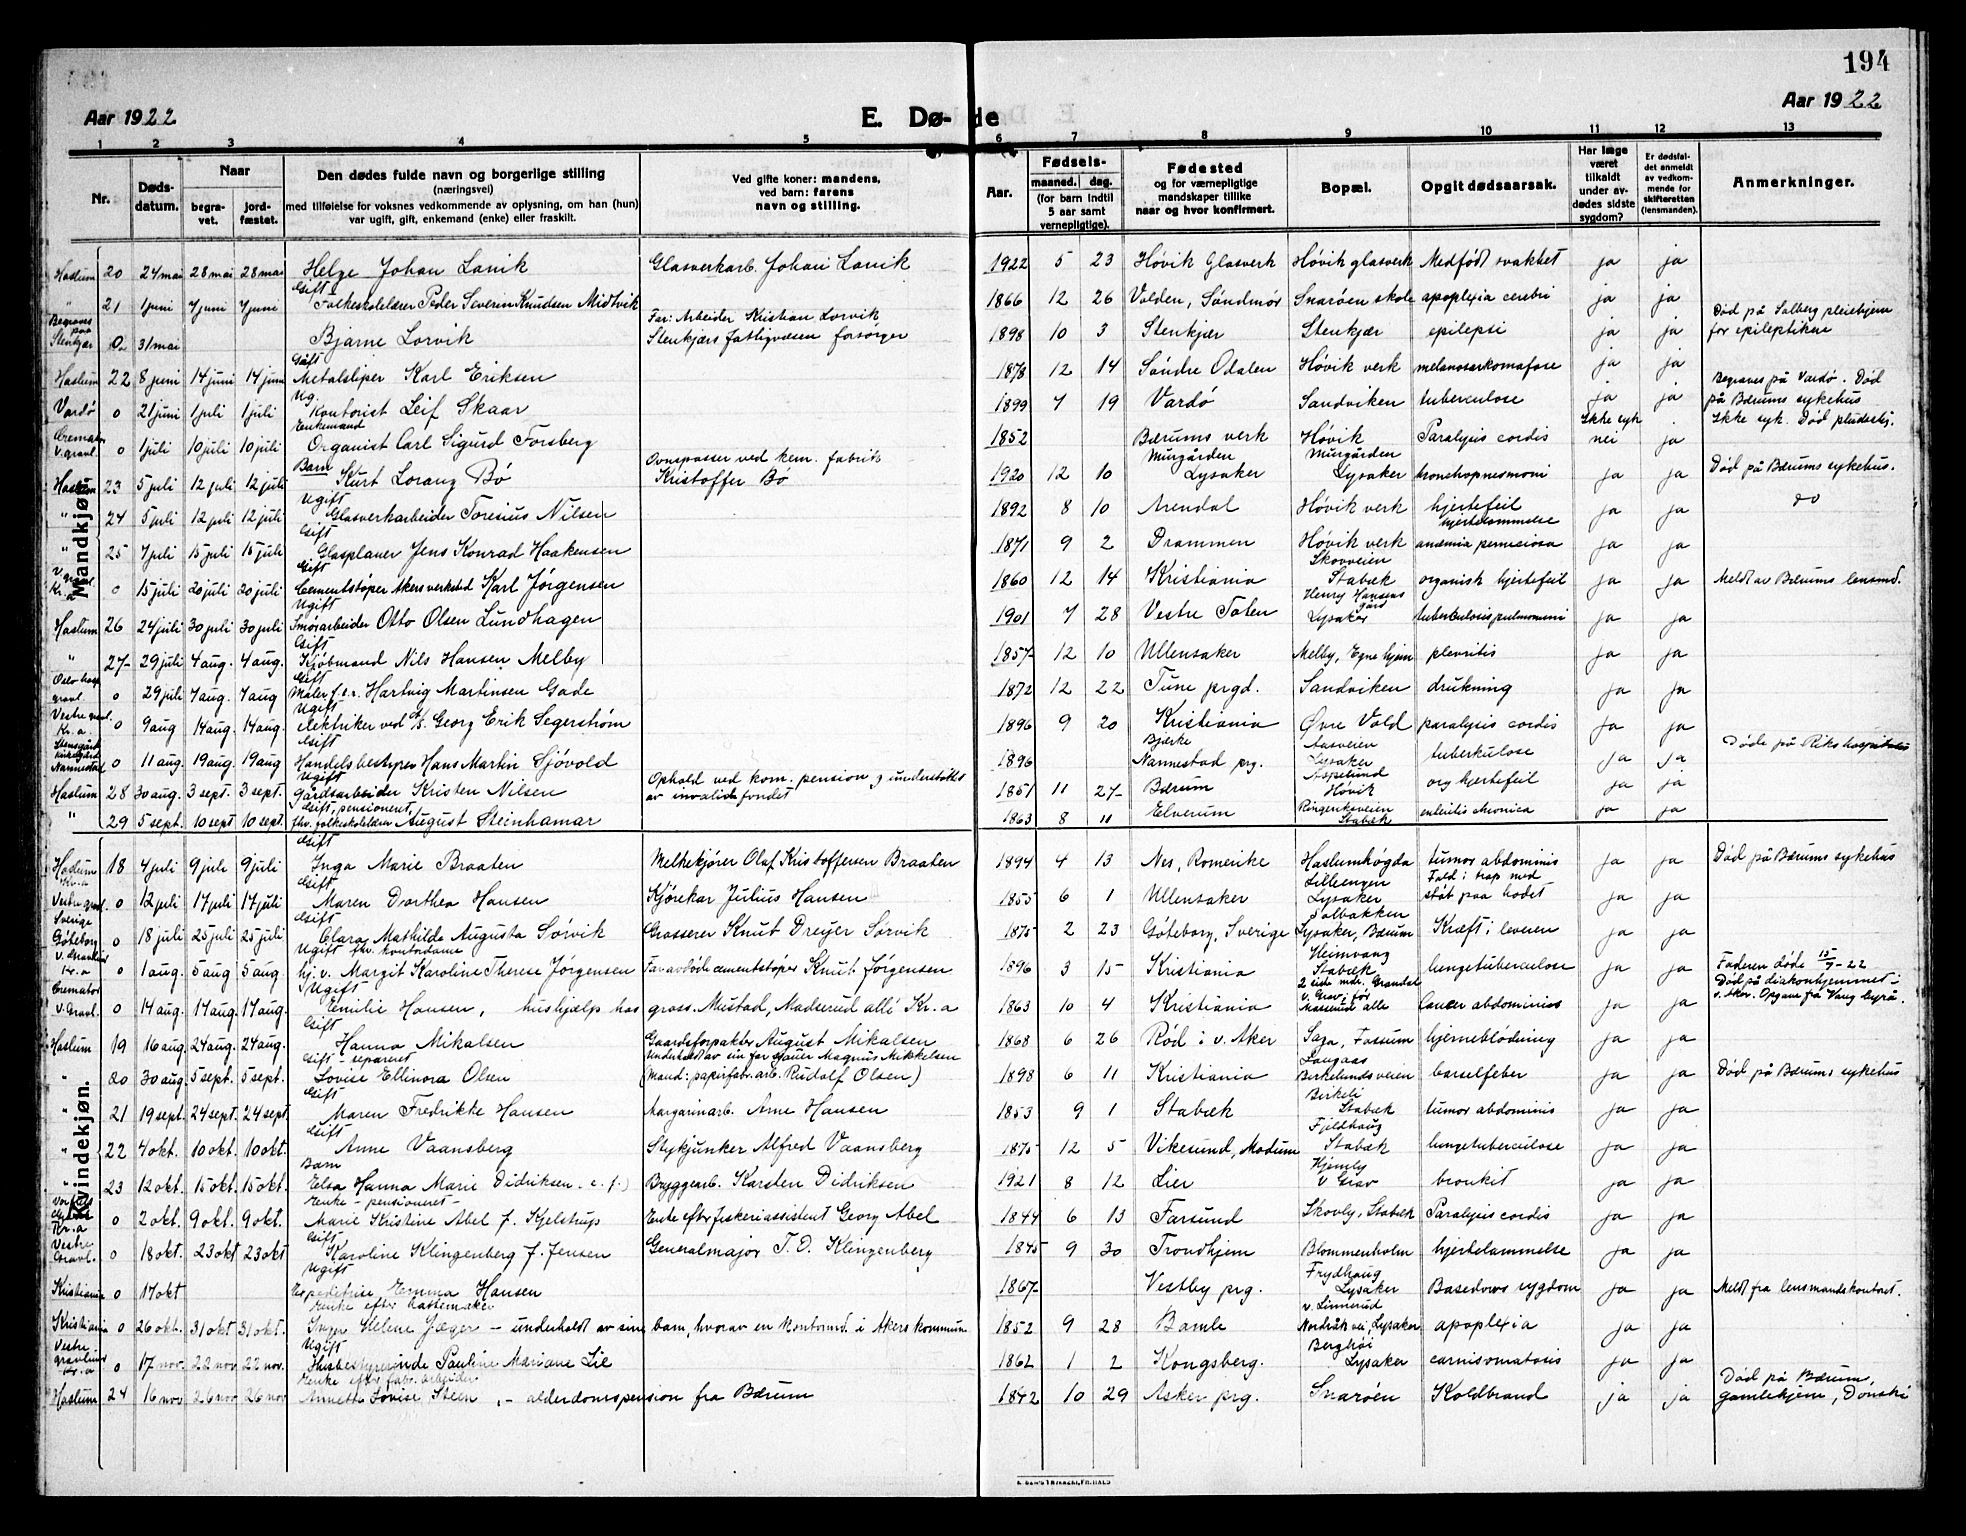 194
Aar 1922
E. Dø- de
Aar 1922
1 2 3 4 5 6 7 8 9 10 11 12 13
Nr.
Døds-
datum.
Naar
begra-
vet.
jord-
fæstet.
Den dødes fulde navn og borgerlige stilling
(næringsvei)
med tilføielse for voksnes vedkommende av oplysning, om han (hun)
var ugift, gift, enkemand (enke) eller fraskilt.
Ved gifte koner: mandens,
ved barn: farens
navn og stilling.
Aar.
Fødsels-
maaned. dag.
(for barn indtil
5 aar samt
vernepligtige).
Fødested
og for værnepligtige
mandskaper tillike
naar og hvor konfirmert.
Bopæl.
Opgit dødsaarsak.
Har læge
været
tilkaldt
under av-
dødes sidste
sygdom?
Er dødsfal-
det anmeldt
av vedkom-
mende for
skifteretten
(lensmanden).
Anmerkninger.
Mandkjøn.
Haslum 20 24 mai 28 mai 28 mai Helge Johan Lanik Glasverkarb. Johan Lanik 1922 5 23 Høvik Glasverk Høvik glasverk Medfødt svakhet ja ja
" 21 1 juni 7 juni 7 juni Gift Folkeskolelærer Peder Severin Knudsen Midtvik 1866 12 26 Volden, Søndmør Snarøen skole apoplexia cerebri ja ja
Begraves paa Stenkjær 0 31 mai Bjarne Lorvik Far: Arbeider Kristian Lorvik Stenkjærs fattigvæsen forsørger 1898 10 3 Stenkjær Stenkjær epilepsi ja ja Død på Solberg pleiehjem for epileptikere
Haslum 22 8 juni 14 juni 14 juni Gift Metalsliper Karl Eriksen 1878 12 14 Søndre Odalen Høvik verk melanosarkomatose ja ja
Vardø 0 21 juni 1 juli 1 juli Ug. Kontorist Leif Skaar 1899 7 19 Vardø Sandviken tuberculose ja ja Begraves på Vardø. Død på Bærums sykehus
Cremator. V. gravl. 0 1 juli 10 juli 10 juli Enkemand Organist Carl Sigurd Forsberg 1852 Bærums verk Høvik Paralysis cordis Ikke syk nei ja Ikke syk. Død pludselig.
Haslum 23 5 juli 12 juli 12 juli Barn Kurt Loranz Bø Ovnspasser ved kem. fabrik Kristoffer Bø 1920 12 10 Murgården Lysaker Murgården Lysaker bronchopneumoni ja ja Død på Bærums sykehus.
" 24 5 juli 12 juli 12 juli Ugift Glasverkarbeider Toresius Nilsen 1892 8 10 Arendal Høvik verk hjertefeil hjertelammelse ja ja do
" 25 7 juli 15 juli 15 juli Gift Glasplaner Jens Konrad Haakensen 1871 9 2 Drammen Høvik verk anæmia perniciosa ja ja
V. gravl. Kr.a 0 15 juli 20 juli 20 juli Gift Cementstøper Akers verksted Karl Jørgensen 1860 12 14 Kristiania Skovveien Stabæk organisk hjertefeil ja ja Meldt av Bærums lensmd.
Haslum 26 24 juli 30 juli 30 juli Ugift Smørarbeider Otto Olsen Lundhagen 1901 7 28 Vestre Toten Henry Hansens gård Lysaker tuberkulosis pulmonum ja ja
" 27 29 juli 4 aug. 4 aug. Gift Kjøbmand Nils Hansen Melby 1857 12 10 Ullensaker Melby, Egne hjem plevritis ja ja
Oslo hosp. gravl. 0 29 juli 7 aug. 7 aug Gift Maler f.o.r. Hartvig Martinsen Gade 1872 12 22 Tune prgd. Sandviken drukning ja ja
Vestre gravl. Kr.a. 0 9 aug 14 aug. 14 aug. Ugift elektriker ved A/S Georg Erik Segerstrøm 1896 9 20 Kristiania Øvre Vold paralysis cordis ja ja
Stensgård kirkegård Nannestad 0 11 aug. 19 aug. 19 aug Gift Handelsbestyrer Hans Martin Sjøvold 1896 Bjerke Nannestad prg. Aasveien Lysaker tuberkulose ja ja Døde på Rikshospitalet
Haslum 28 30 aug. 3 sept. 3 sept. Ugift Gårdsarbeider Kristen Nilsen Ophold ved kom. pension og understøttes av invalidefondet 1851 11 27 Bærum Aspelund Høvik org hjertefeil ja ja
" 29 5 sept. 10 sept 10 sept. Gift, pensionert, fhv. folkeskolelærer August Steinhamar 1863 8 11 Elverum Ringeriksveien Stabæk enteritis chronica ja ja
Kvindekjøn.
Haslum 18 4 juli 9 juli 9 juli Gift Inga Marie Braaten Melkekjører Olaf Kristoffersen Braaten 1894 4 13 Nes, Romerike Haslumhøgda tumor abdominis ja ja Død på Bærums sykehus
Kr.a Vestre gravl. 0 12 juli 17 juli 17 juli Gift Maren Dorthea Hansen Kjørekar Julius Hansen 1855 6 1 Ullensaker Lilleengen Lysaker Fald i trap med støt paa hodet ja ja
Sverige Göteborg 0 18 juli 25 juli 25 juli Gift Clara Mathilde Augusta Sørvik Grosserer Knut Dreyer Sørvik 1875 2 23 Göteborg, Sverige Solbakken Lysaker, Bærum Kræft i leveren ja ja
V. Gravlund Kr.a 0 1 aug. 5 aug 5 aug. Ugift fhv. kontordame hj. v. Margit Karoline Therese Jørgensen Far avdøde cementstøper Knut Jørgensen 1896 3 15 Kristiania Heimvang Stabæk lungetuberculose ja ja Faderen døde 15/7-22
Cremator V. Gravl. 0 14 aug. 17 aug. 17 aug. Ugift Emilie Hansen, hushjælp hos gross. Mustad, Madserud allé Kr.a 1863 10 4 Kristiania 2 siste mdr. Grandal v. Grav, før Madserud alle Cancer abdominis ja ja Død på diakonhjemmet v. Aker. Opgave fra Vang byrå.
Haslum 19 16 aug. 24 aug. 24 aug. Gift Hanna Mikalsen Gaardsforpakter August Mikalsen 1868 6 26 Rød i v. Aker Saga, Fossum hjerneblødning ja ja
" 20 30 aug. 5 sept. 5 sept. Gift - separeret Lovise Ellinora Olsen Underholdt av sin far Magnus Mikkelsen (Mand: papirfabr. arb. Rudolf Olsen) 1898 6 11 Kristiania Langaas Birkelundsveien barselfeber ja ja Død på Bærums sykehus
" 21 19 sept. 24 sept. 24 sept. Gift Maren Fredrikke Hansen Margarinarb. Arne Hansen 1853 9 1 Stabæk Birkeli Stabæk tumor abdominis ja ja
" 22 4 okt. 10 okt. 10 okt. Gift Anne Vaansberg Stykjunker Alfred Vaansberg 1875 12 5 Vikesund, Modum Fjeldhaug Stabæk lungetuberculose ja ja
" 23 12 okt. 15 okt. 15 okt. Barn Elsa Hanna Marie Didriksen Bryggearb. Karsten Didriksen 1921 8 12 Lier Hjemly v Grav bronkit ja ja
Kr.a 0 2 okt. 9 okt. 9 okt. Enke - pensioneret Marie Kristine Abel f. Kjelstrup Enke efter fiskeriassistent Georg Abel 1844 6 13 Farsund Skovly, Stabæk Paralysis cordis ja ja
Vestre Gravl. 0 18 okt. 23 okt 23 okt Gift Karoline Klingenberg f. Jensen Generalmajor T. O. Klingenberg 1845 9 30 Trondhjem Blommenholm hjertelammelse ja ja
Kristiania 0 17 okt Ugift Expeditrise Emma Hansen 1867 Vestby prg. Frydhaug Lysaker Basedows sygdom ja ja Meldt fra lensmandskontoret.
Kristiania 0 26 okt. 31 okt 31 okt. Enke efter hattemaker Inger Helene Jæger - underholdt av sine barn, hvorav en kontormd. i Akers kommune 1852 9 28 Bamle v. Linnerud Nordråk vei, Lysaker apoplexia ja ja
Vestre gravlund Kr.a 0 17 nov. 22 nov 22 nov. Ugift Husbestyrerinde Pauline Mariane Lie 1862 1 2 Kongsberg. Berghøi Lysaker carnisomatosis ja ja
Haslum 24 16 nov. 26 nov 26 nov Enke efter fabr. arbeider Annette Lovise Steen, - alderdomspension fra Bærum 1842 10 29 Asker prg. Snarøen Koldbrand ja ja Død på Bærum, gamlehjem, Dønski